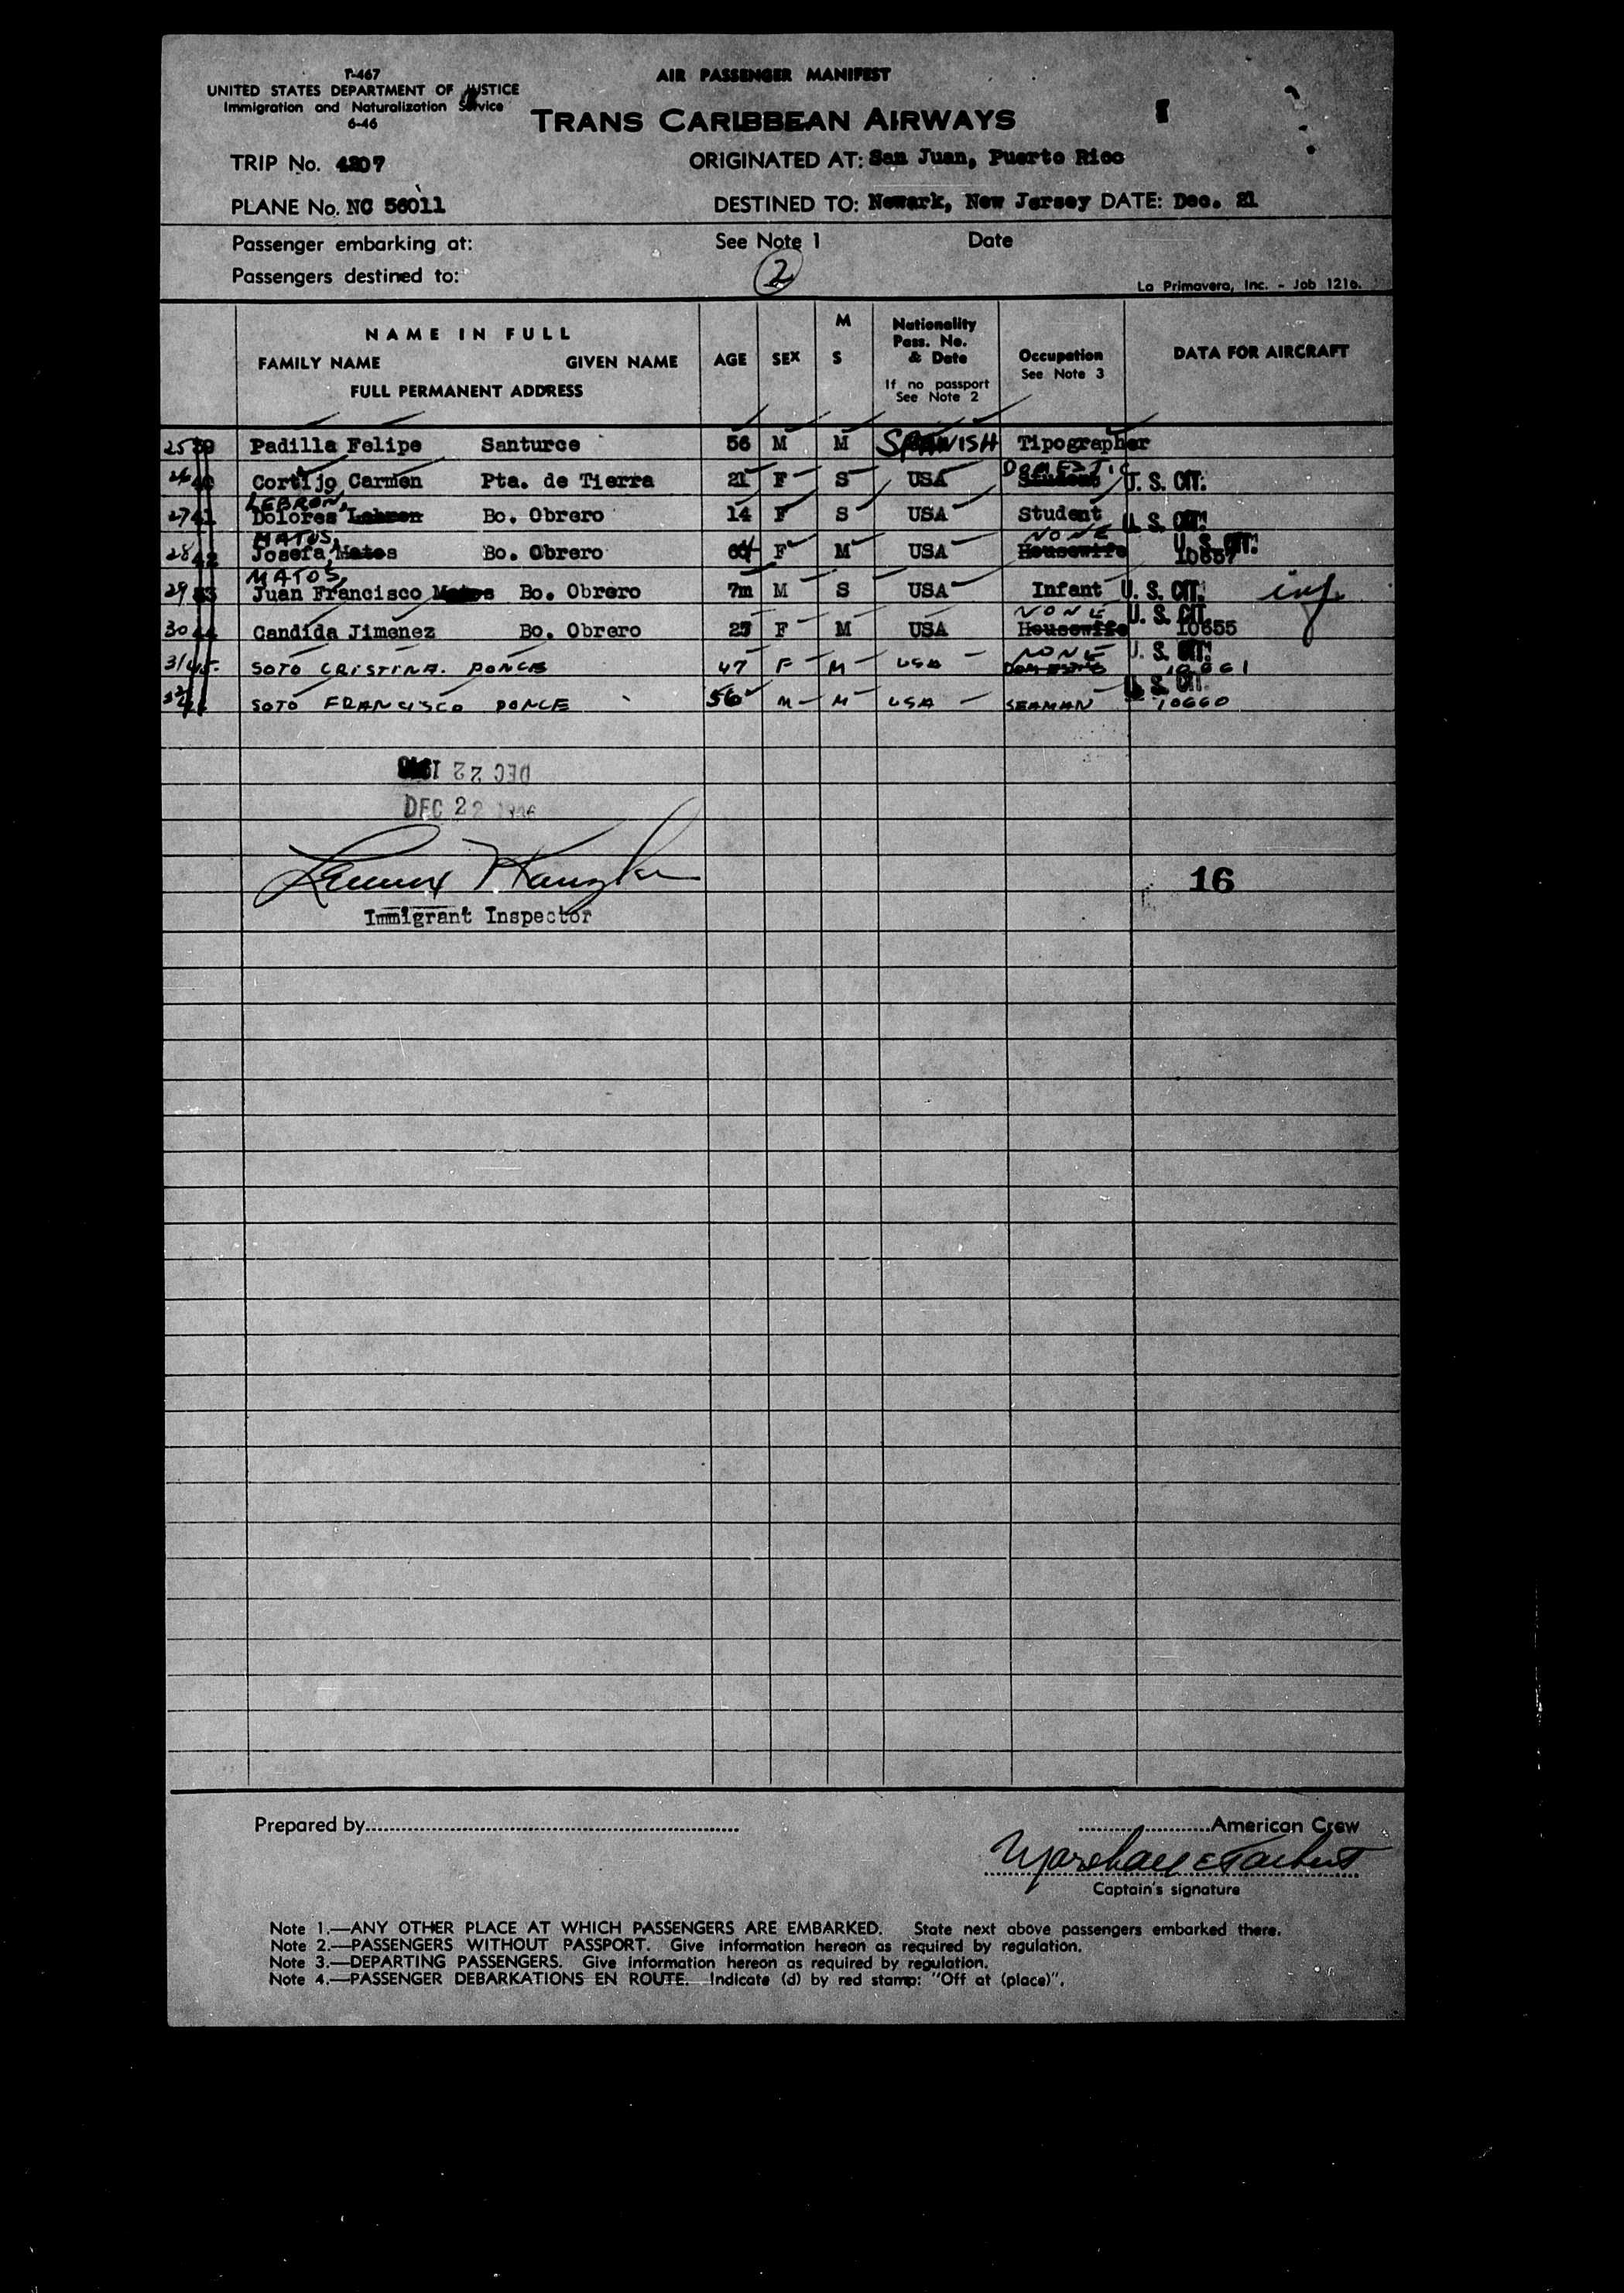 P-467
UNITED STATES DEPARTMENT OF JUSTICE
Immigration and Naturalization Service
6-46
AIR PASSENGER MANIFEST
TRANS CARIBBEAN AIRWAYS
TRIP No. 4207
ORIGINATED AT: San Juan, Puerto Rico
PLANE No. NC 56011
DESTINED TO: Newark, New Jersey DATE: Dec. 21
Passenger embarking at: See Note 1 Date
Passengers destined to: 2
La Primavera, Inc. - Job 1216.
NAME IN FULL
FAMILY NAME GIVEN NAME
FULL PERMANENT ADDRESS
AGE SEX M S
Nationality
Pass. No.
& Date
If no passport
See Note 2
Occupation
See Note 3
DATA FOR AIRCRAFT
25 39 Padilla Felipe Santurce 56 M M SPANISH Tipographer
DOMESTIC
26 40 Cortijo Carmen Pta. de Tierra 21 F S USA Student U. S. CIT.
LEBRON,
27 41 Dolores Lebron Bo. Obrero 14 F S USA Student U. S. CIT.
MATOS, NONE U. S. CIT.
28 42 Josefa Matos Bo. Obrero F M USA Housewife 10657
MATOS,
29 43 Juan Francisco Matos Bo. Obrero 7m M S USA Infant U. S. CIT. inf
NONE U. S. CIT.
30 44 Candida Jimenez Bo. Obrero F M USA Housewife 10655
NONE U. S. CIT.
31 45 SOTO CRISTINA. PONCE 47 F M USA DOMESTIC 10661
U. S. CIT.
32 SOTO FRANCISCO PONCE 56 M M USA SEAMAN 10660
DEC 22 1946
DEC 22 1946
16
Immigrant Inspector
Prepared by
American Crew
Marshall
Captain's signature
Note 1.—ANY OTHER PLACE AT WHICH PASSENGERS ARE EMBARKED. State next above passengers embarked there.
Note 2.—PASSENGERS WITHOUT PASSPORT. Give information hereon as required by regulation.
Note 3.—DEPARTING PASSENGERS. Give information hereon as required by regulation.
Note 4.—PASSENGER DEBARKATIONS EN ROUTE. Indicate (d) by red stamp: "Off at (place)".